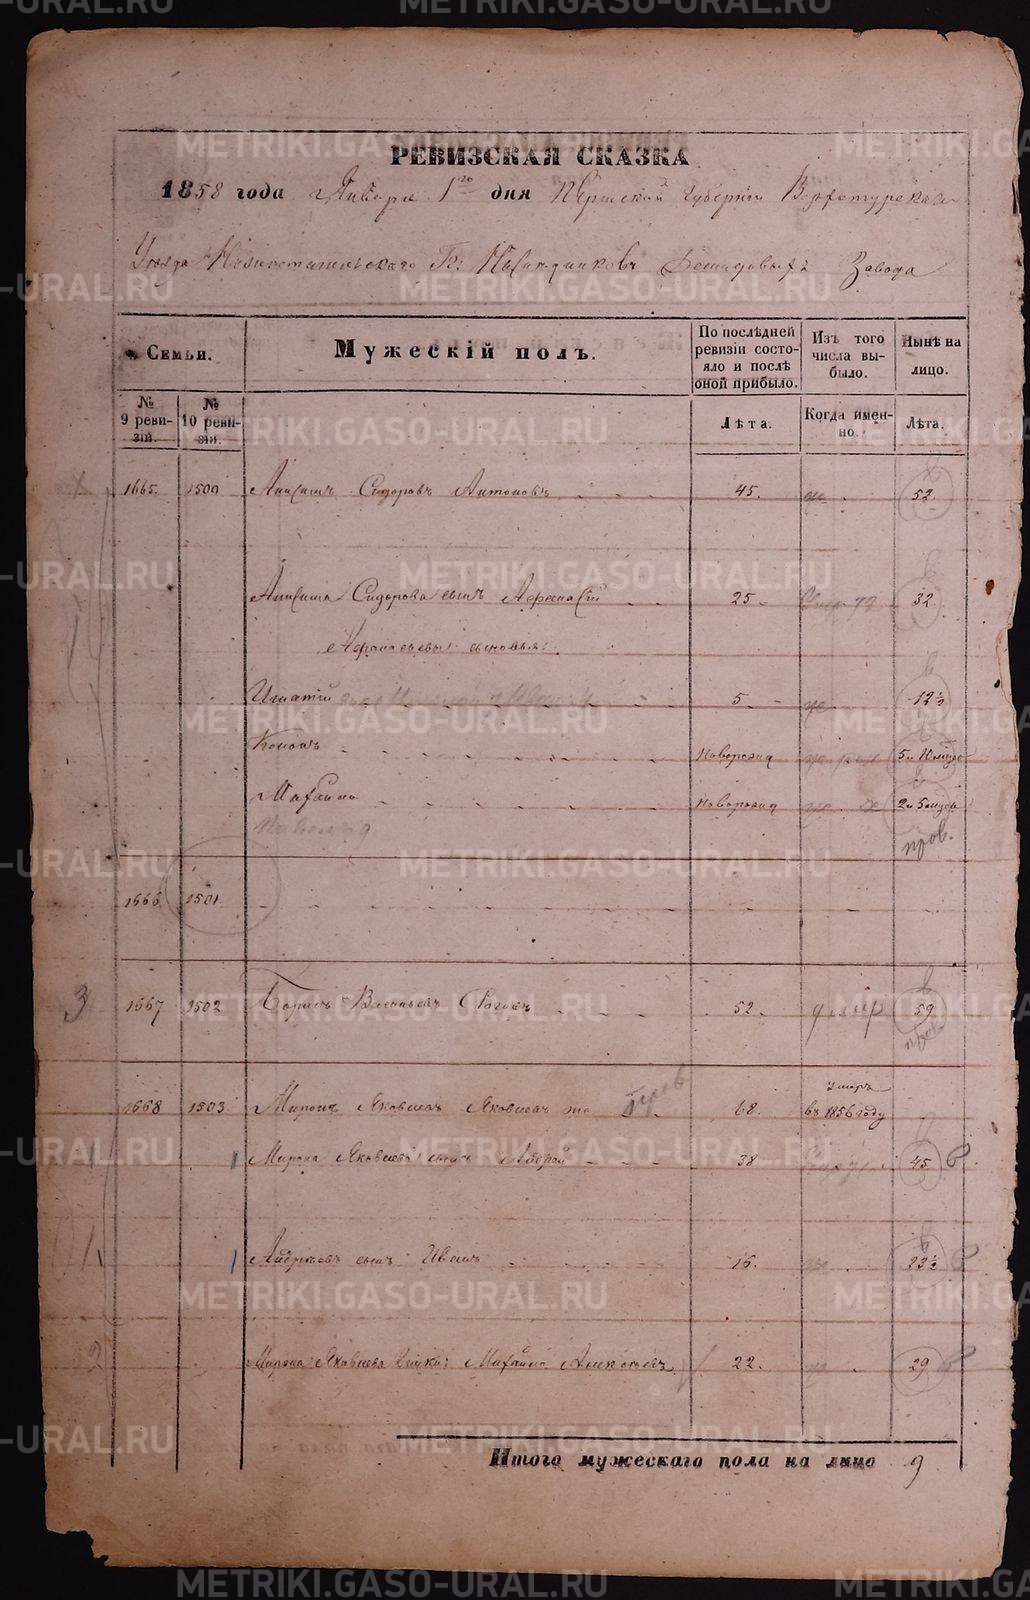 РЕВИЗСКАЯ СКАЗКА
1858 года Января 1го дня Пермской Губерніи Верхотурскаго
Уѣзда Нижнетагильскаго Гг: Наслѣдниковъ Демидовыхъ Завода
Семьи.
Мужескій полъ.
По послѣдней ревизіи состояло и послѣ оной прибыло.
Изъ того числа выбыло.
Нынѣ на лицо.
№ 9 ревизіи.
№ 10 ревизіи.
Лѣта.
Когда именно.
Лѣта.
1665. 1500 Анисимъ Сидоровъ Антоновъ 45. 52.
Анисима Сидорова сынъ Афанасій 25 32.
Афанасьевы сыновья:
Игнатій 5 12½
Кононъ Новорожд 5 и 10 мѣсяц
Михайло Новорожд 2 и 5 мѣсяц
пров.
1666 1501
3 1667 1502 Борисъ Васильевъ Роговъ 52. 59
1668 1503 Миронъ Яковлевъ Яковлевъ же 68. Умеръ въ 1856 году
Мирона Яковлева сынъ Андрей 38 45
Андреевъ сынъ Иванъ 16. 23½
Мирона Яковлева внукъ: Михайло Алексѣевъ 22. 29
Итого мужескаго пола на лицо 9
METRIKI.GASO-URAL.RU